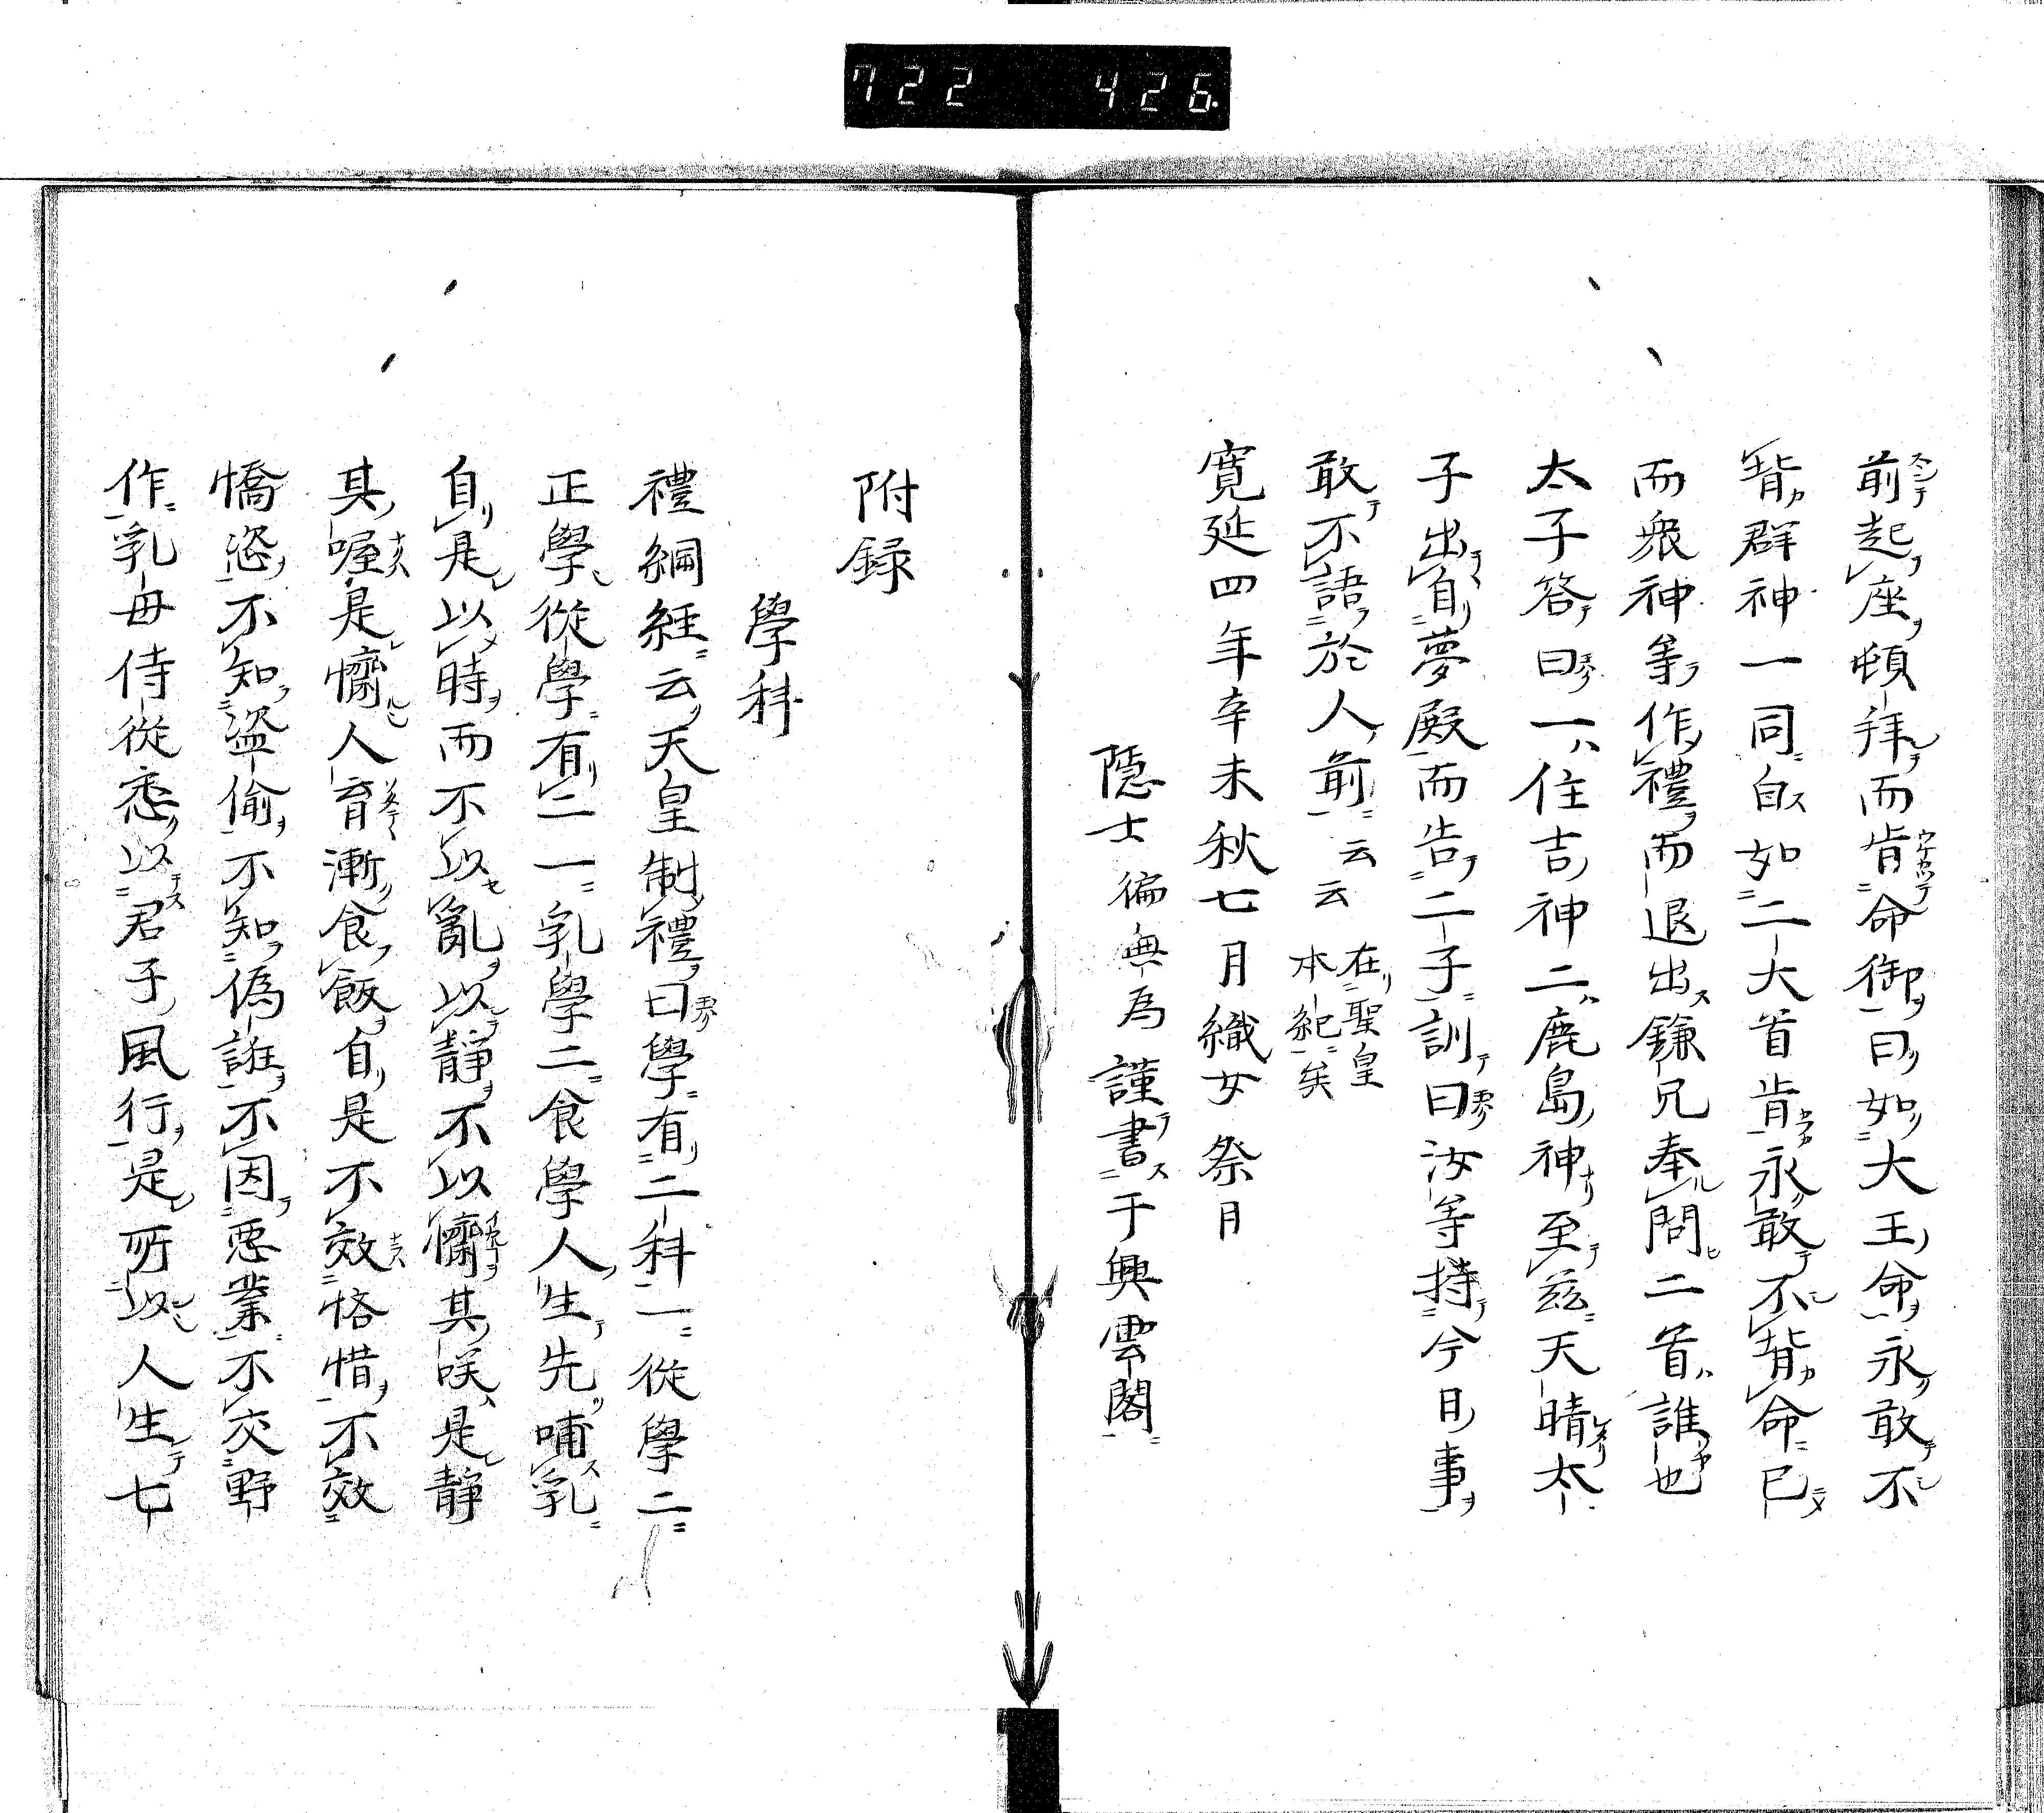 722 426
前起座頓拜而肯命御曰如大王命永敢不
背群神一同白如二大首肯永敢不背命已
而衆神等作禮而退出鎌兄奉問二首誰也
太子答曰一住吉神二鹿島神至茲天晴太
子出自夢殿而告二子訓曰汝等持今日事
敢不語於人前云云在聖皇
本紀矣
寛延四年辛未秋七月織女祭月
隠士徧無為謹書于興雲閣
附録
學科
禮綱経云天皇制禮曰學有二科一從學二
正學從學有二一乳學二食學人生先哺乳
自是以時而不以亂以靜不以懠其咲是靜
其喔是懠人育漸食飯自是不效悋惜不效
憍恣不知盜偷不知偽誑不因惡業不交野
作乳母侍從悉以君子風行是所以人生七